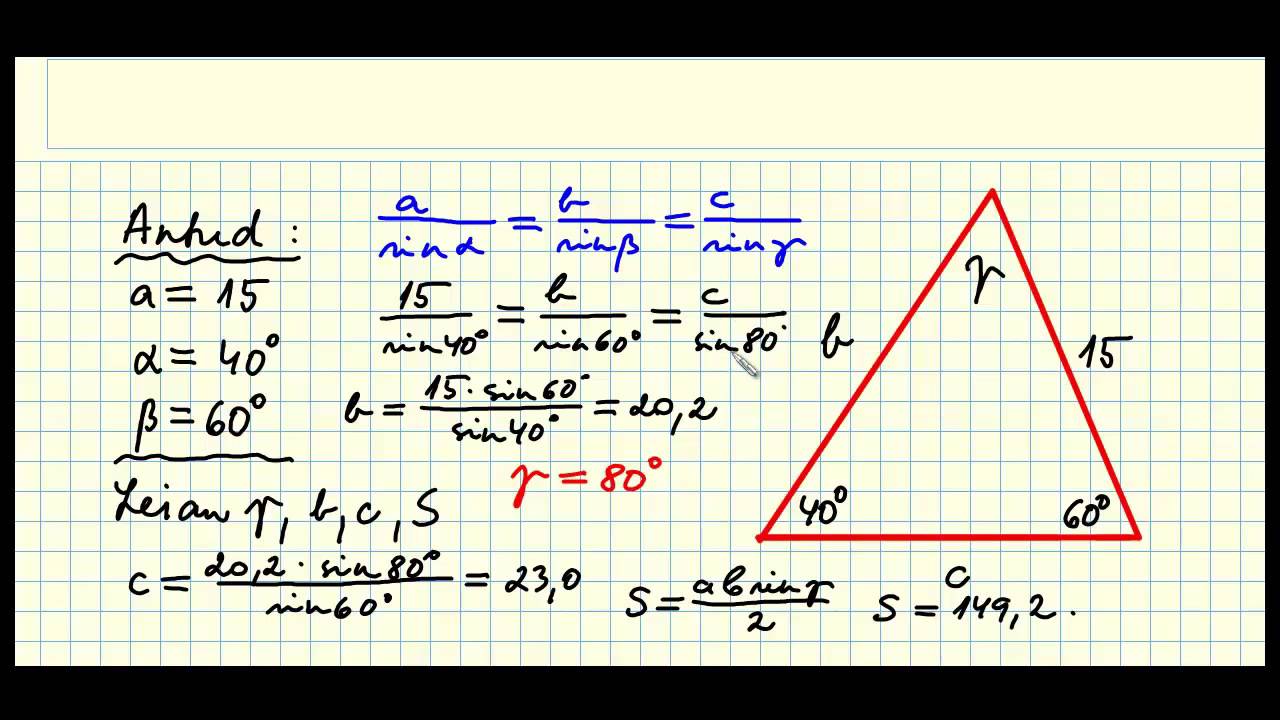 Antud :
a = 15
α = 40°
β = 60°
Leian γ, b, c, S
a/sin α = b/sin β = c/sin γ
15/sin 40° = b/sin 60° = c/sin 80°
b = 15 · sin 60°/sin 40° = 20,2
γ = 80°
c = 20,2 · sin 80°/sin 60° = 23,0
S = ab sin γ/2
S = 149,2 .
γ
b
15
40°
60°
c